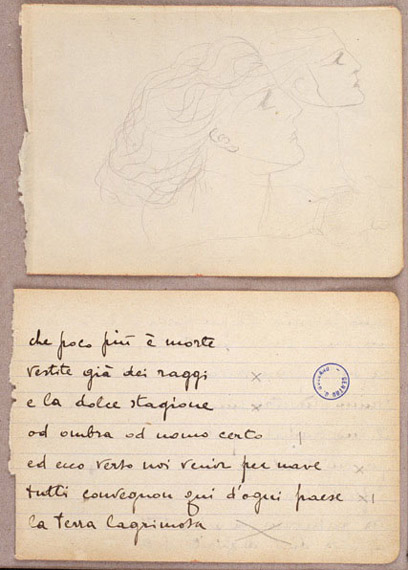 che poco più è morte
vestite già dei raggi
e la dolce stagione
od ombra od uomo certo
ed ecco verso noi venir per nave
tutti convegnon qui d'ogni paese
la terra lagrimosa